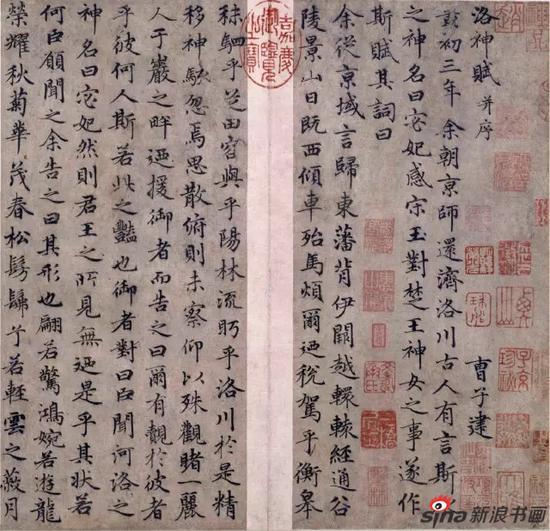 洛神賦 并序
曹子建
黃初三年余朝京師還濟洛川古人有言斯水
之神名曰宓妃感宋玉對楚王神女之事遂作
斯賦其詞曰
余從京域言歸東藩背伊闕越轘轅經通谷
陵景山日既西傾車殆馬煩爾迺稅駕乎衡皋
嘉慶御覽之寶
秣駟乎芝田容與乎陽林流眄乎洛川於是精
移神駭忽焉思散俯則未察仰以殊觀睹一麗
人于巖之畔迺援御者而告之曰爾有覿於彼者
乎彼何人斯若此之豔也御者對曰臣聞河洛之
神名曰宓妃然則君王之所見無迺是乎其狀若
何臣願聞之余告之曰其形也翩若驚鴻婉若遊龍
榮耀秋菊華茂春松髣髴兮若輕雲之蔽月
sina新浪书画